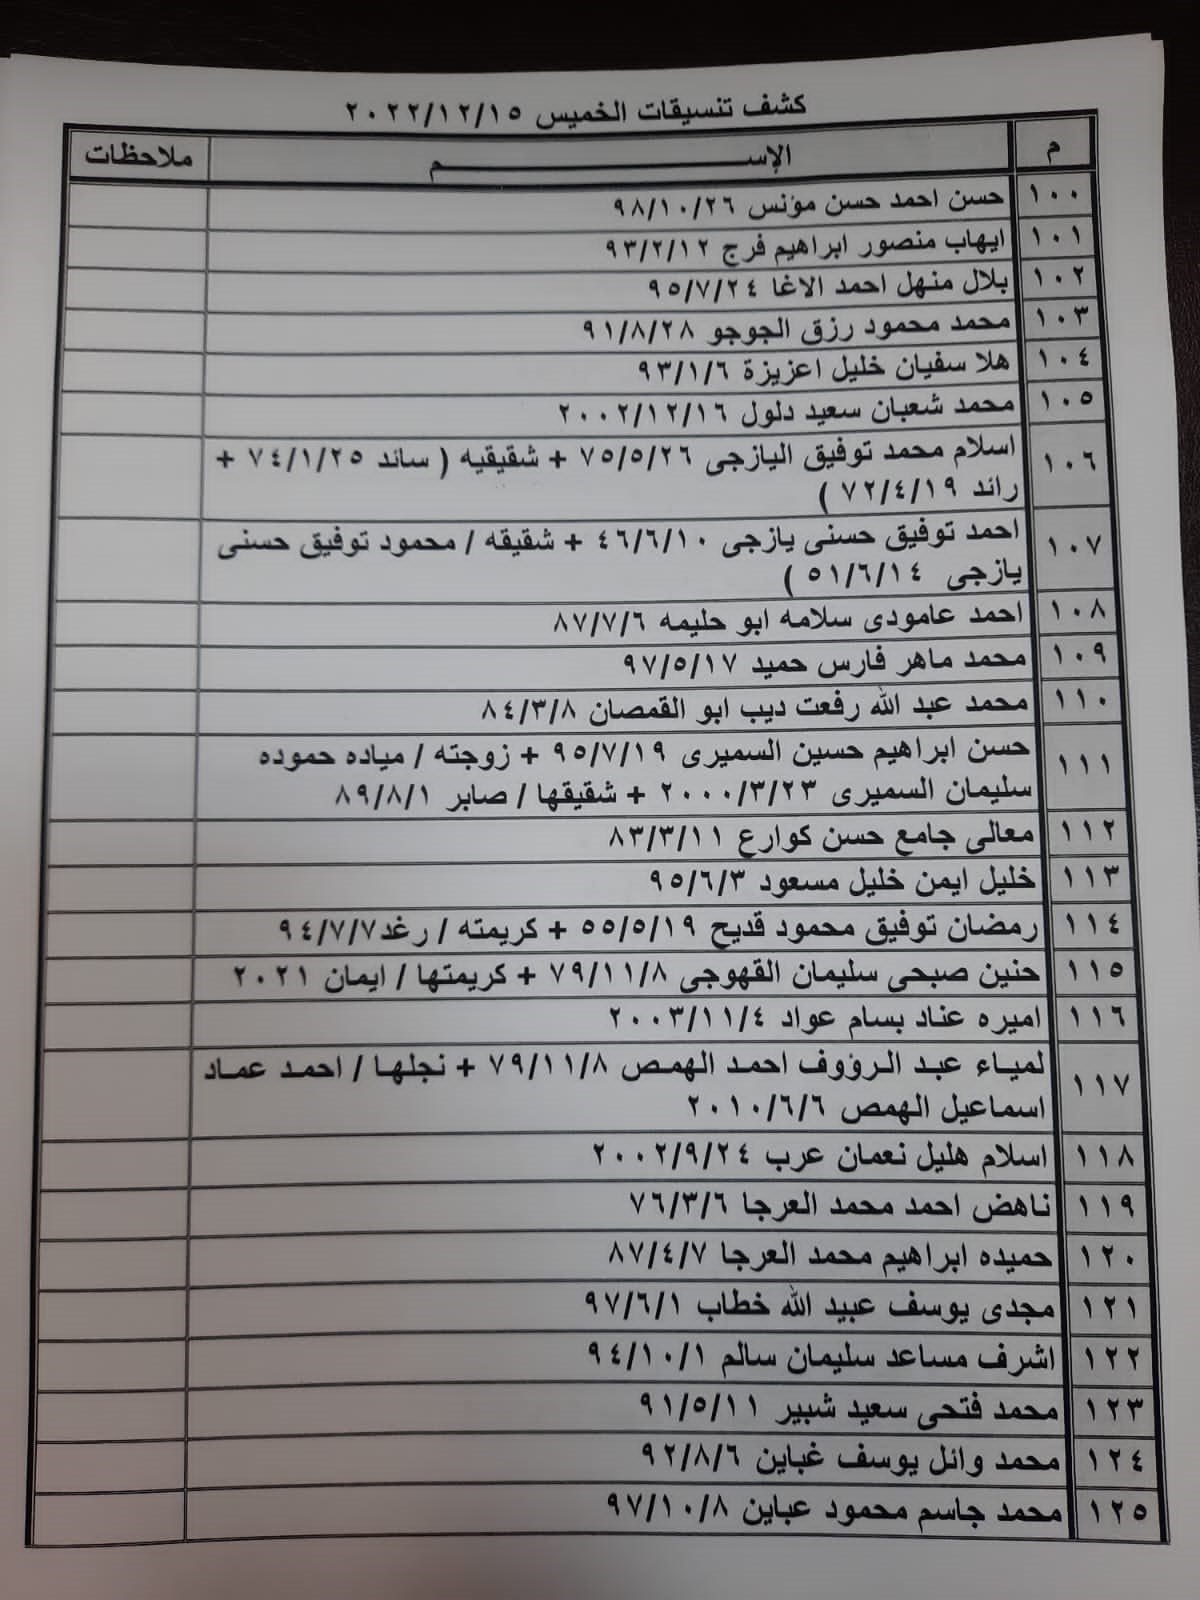 كشف تنسيقات الخميس ٢٠٢٢/١٢/١٥
م الإســـــــــم ملاحظات
١٠٠ حسن احمد حسن مؤنس ٩٨/١٠/٢٦
١٠١ ايهاب منصور ابراهيم فرج ٩٣/٢/١٢
١٠٢ بلال منهل احمد الاغا ٩٥/٧/٢٤
١٠٣ محمد محمود رزق الجوجو ٩١/٨/٢٨
١٠٤ هلا سفيان خليل اعزيزة ٩٣/١/٦
١٠٥ محمد شعبان سعيد دلول ٢٠٠٢/١٢/١٦
١٠٦ اسلام محمد توفيق اليازجى ٧٥/٥/٢٦ + شقيقيه ( سائد ٧٤/١/٢٥ +
رائد ٧٢/٤/١٩ )
١٠٧ احمد توفيق حسنى يازجى ٤٦/٦/١٠ + شقيقه / محمود توفيق حسنى
يازجى ٥١/٦/١٤ )
١٠٨ احمد عامودى سلامه ابو حليمه ٨٧/٧/٦
١٠٩ محمد ماهر فارس حميد ٩٧/٥/١٧
١١٠ محمد عبد الله رفعت ديب ابو القمصان ٨٤/٣/٨
١١١ حسن ابراهيم حسين السميرى ٩٥/٧/١٩ + زوجته / مياده حموده
سليمان السميرى ٢٠٠٠/٣/٢٣ + شقيقها / صابر ٨٩/٨/١
١١٢ معالى جامع حسن كوارع ٨٣/٣/١١
١١٣ خليل ايمن خليل مسعود ٩٥/٦/٣
١١٤ رمضان توفيق محمود قديح ٥٥/٥/١٩ + كريمته / رغد ٩٤/٧/٧
١١٥ حنين صبحى سليمان القهوجى ٧٩/١١/٨ + كريمتها / ايمان ٢٠٢١
١١٦ اميره عناد بسام عواد ٢٠٠٣/١١/٤
١١٧ لمياء عبد الرؤوف احمد الهمص ٧٩/١١/٨ + نجلها / احمد عماد
اسماعيل الهمص ٢٠١٠/٦/٦
١١٨ اسلام هليل نعمان عرب ٢٠٠٢/٩/٢٤
١١٩ ناهض احمد محمد العرجا ٧٦/٣/٦
١٢٠ حميده ابراهيم محمد العرجا ٨٧/٤/٧
١٢١ مجدى يوسف عبيد الله خطاب ٩٧/٦/١
١٢٢ اشرف مساعد سليمان سالم ٩٤/١٠/١
١٢٣ محمد فتحى سعيد شبير ٩١/٥/١١
١٢٤ محمد وائل يوسف غباين ٩٢/٨/٦
١٢٥ محمد جاسم محمود عباين ٩٧/١٠/٨